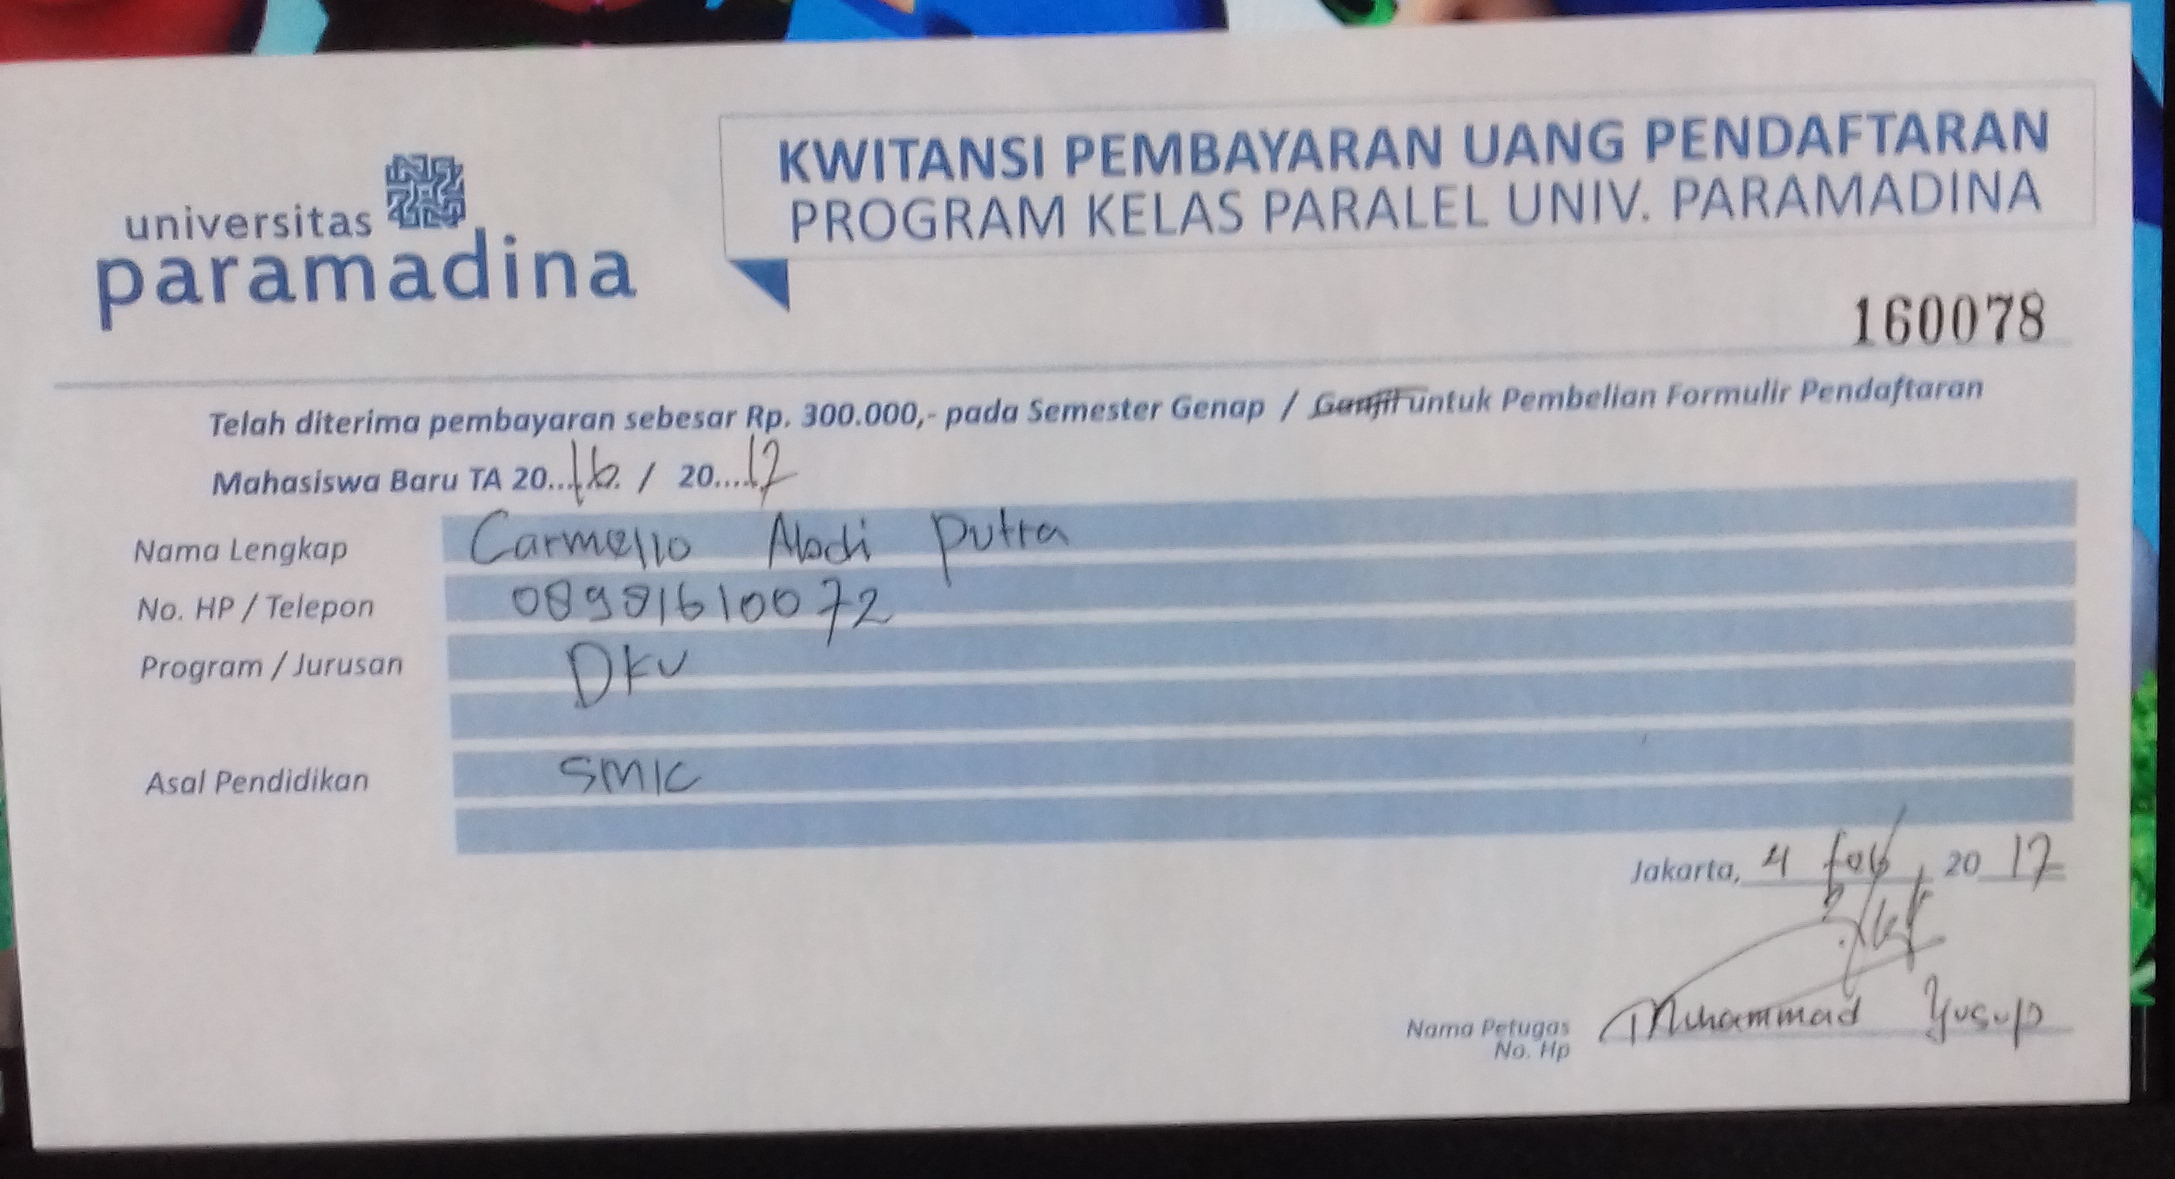 universitas
paramadina
KWITANSI PEMBAYARAN UANG PENDAFTARAN
PROGRAM KELAS PARALEL UNIV. PARAMADINA
160078
Telah diterima pembayaran sebesar Rp. 300.000,- pada Semester Genap / Ganjil untuk Pembelian Formulir Pendaftaran
Mahasiswa Baru TA 20...16. / 20....17
Nama Lengkap Carmello Abdi Putra
No. HP / Telepon 08991610072
Program / Jurusan DKV
Asal Pendidikan SMK
Jakarta, 4 feb 20 17
Nama Petugas Muhammad Yusup
No. Hp